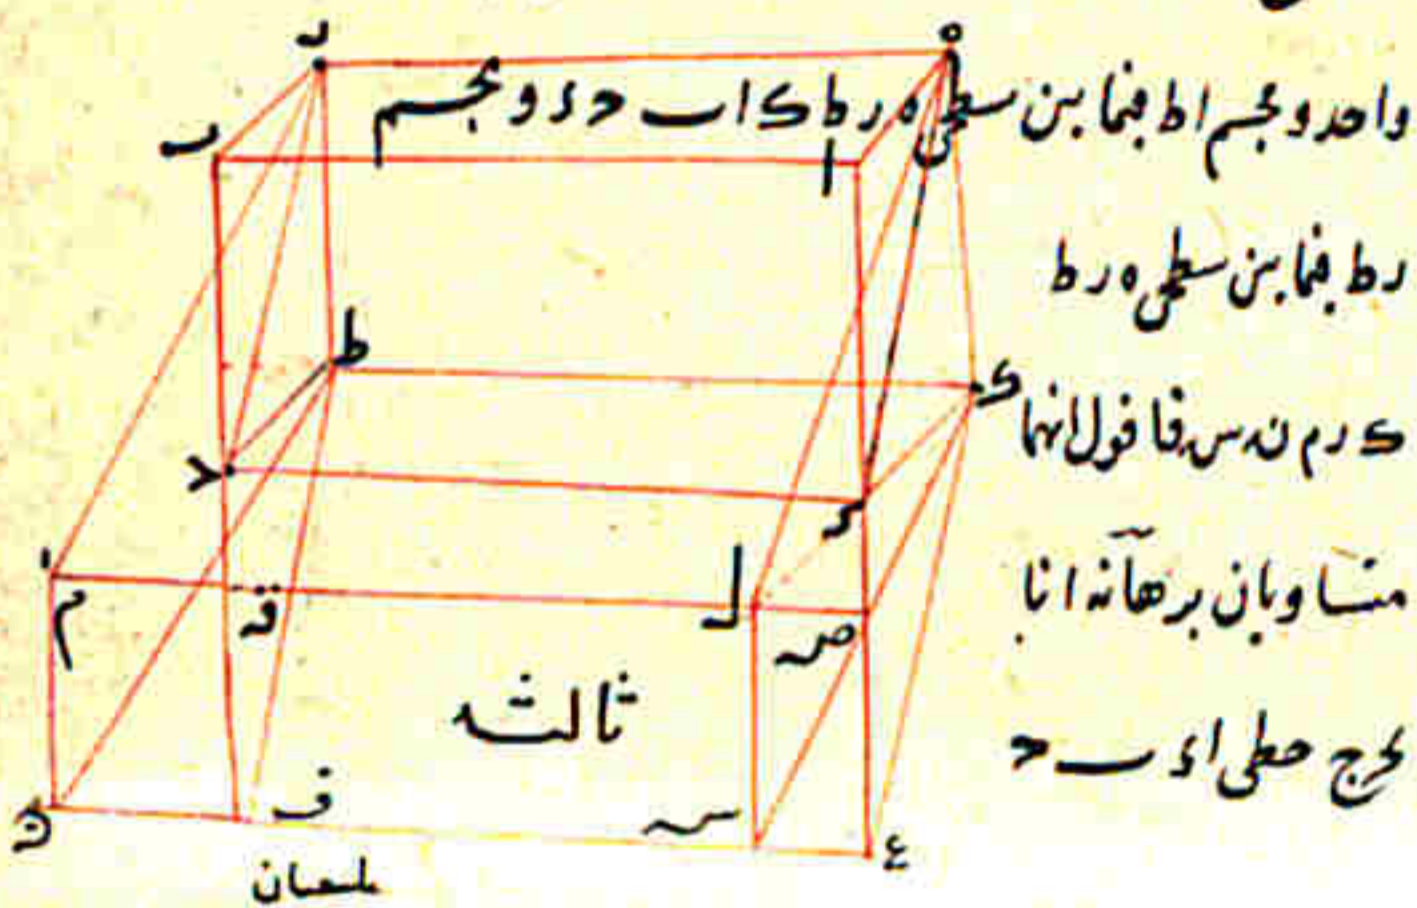 واحد ومجسم اط فيما بين سطحى ه ر ط ك ا ب ح د ومجسم
ر ط فيما بين سطحى ه ر ط
ك ر م ن س فاقول انهما
متساويان برهانه انا
نخرج خطى ا د ب ح
ر
ه
ب
ا
ط
ك
ح
د
م
ق
ل
ص
ثالثه
ن
ف
س
ع